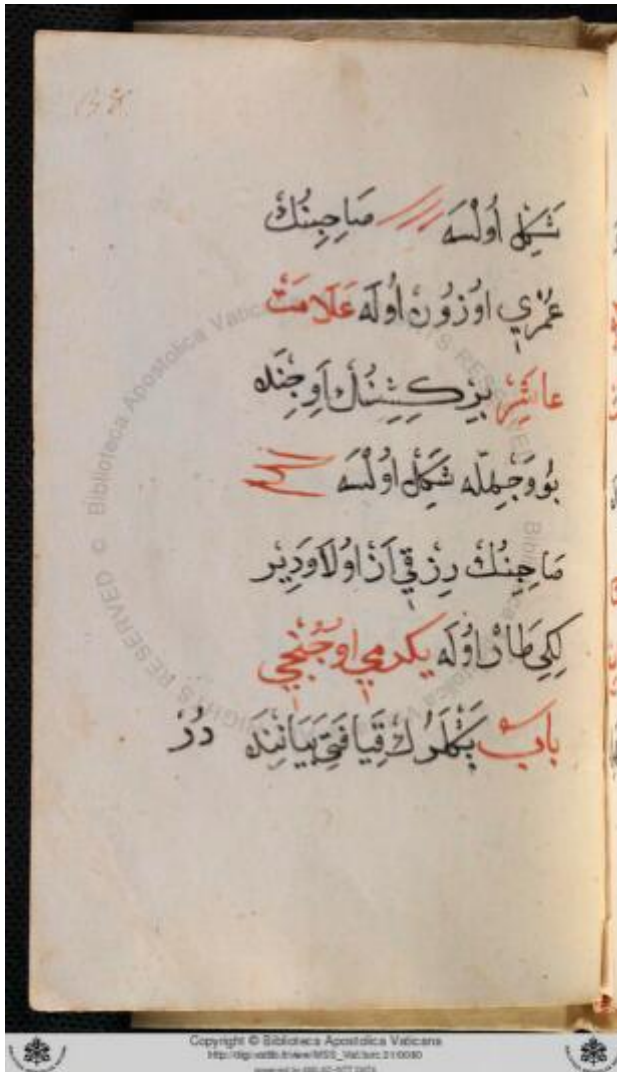 شَكِل اُولْسَه صَاحِبِنُكْ
عُمْرِي اوُزُونْ اوُلَه عَلَامَتْ
عَاشِرْ بِرْ كِشِنُكْ اَوِجِنْدَه
بُو وَجْهِلَه شَكِلْ اوُلْسَه
صَاحِبِنُكْ رِزْقِي اَزْ اوُلَا وَدِيرْ
لِكِي طَارْ اوُلَه يِكِرْمِي اوُچُنْجِي
بَابْ بَكْلَرُكْ قِيَافَتِي بَيَانِنْدَه دُرْ
Copyright © Biblioteca Apostolica Vaticana